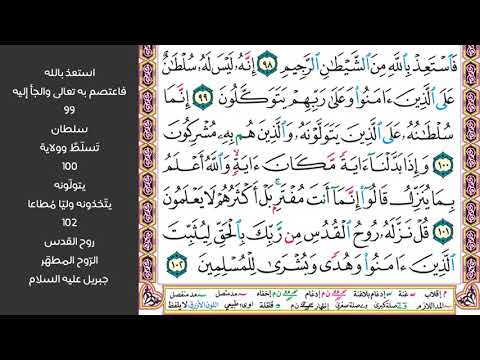 استعذ بالله
فاعتصم به تعالى والجأ إليه
99
سلطان
تسلطٌ وولاية
100
يتولّونه
يتّخذونه وليّا مُطاعا
102
روح القدس
الرّوح المطهّر
جبريل عليه السلام
فَاسْتَعِذْ بِاللَّهِ مِنَ الشَّيْطَانِ الرَّجِيمِ ٩٨ إِنَّهُ لَيْسَ لَهُ سُلْطَانٌ
عَلَى الَّذِينَ ءَامَنُوا وَعَلَى رَبِّهِمْ يَتَوَكَّلُونَ ٩٩ إِنَّمَا
سُلْطَانُهُ عَلَى الَّذِينَ يَتَوَلَّوْنَهُ وَالَّذِينَ هُم بِهِ مُشْرِكُونَ
١٠٠ وَإِذَا بَدَّلْنَا ءَايَةً مَّكَانَ ءَايَةٍ وَاللَّهُ أَعْلَمُ
بِمَا يُنَزِّلُ قَالُوا إِنَّمَا أَنتَ مُفْتَرٍ بَلْ أَكْثَرُهُمْ لَا يَعْلَمُونَ
١٠١ قُلْ نَزَّلَهُ رُوحُ الْقُدُسِ مِن رَّبِّكَ بِالْحَقِّ لِيُثَبِّتَ
الَّذِينَ ءَامَنُوا وَهُدًى وَبُشْرَى لِلْمُسْلِمِينَ ١٠٢